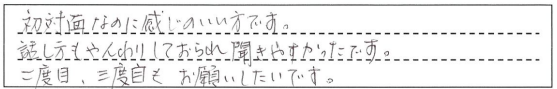 初対面なのに感じのいい方です。
話し方もやんわりしておられ聞きやすかったです。
二度目、三度目もお願いしたいです。